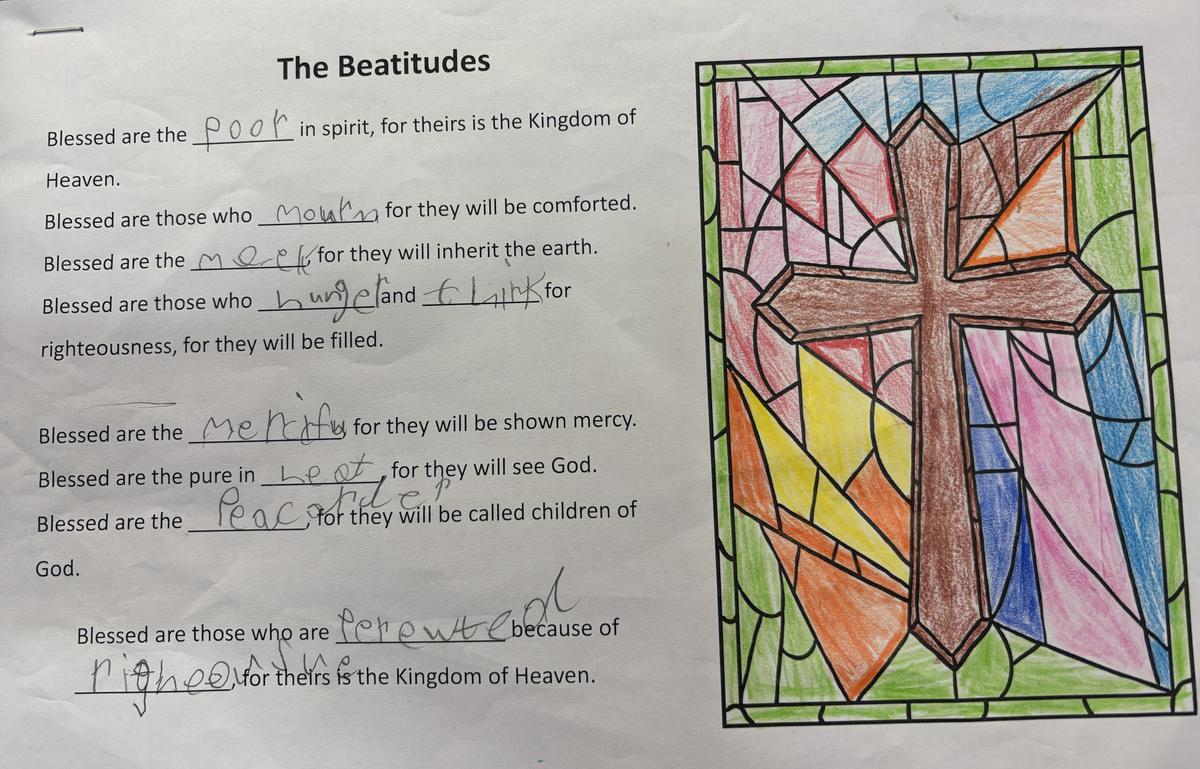 The Beatitudes
Blessed are the poor in spirit, for theirs is the Kingdom of
Heaven.
Blessed are those who mourn for they will be comforted.
Blessed are the meek for they will inherit the earth.
Blessed are those who hunger and for
righteousness, for they will be filled.
Blessed are the for they will be shown mercy.
Blessed are the pure in heat, for they will see God.
Blessed are the , for they will be called children of
God.
Blessed are those who are because of
, for theirs is the Kingdom of Heaven.